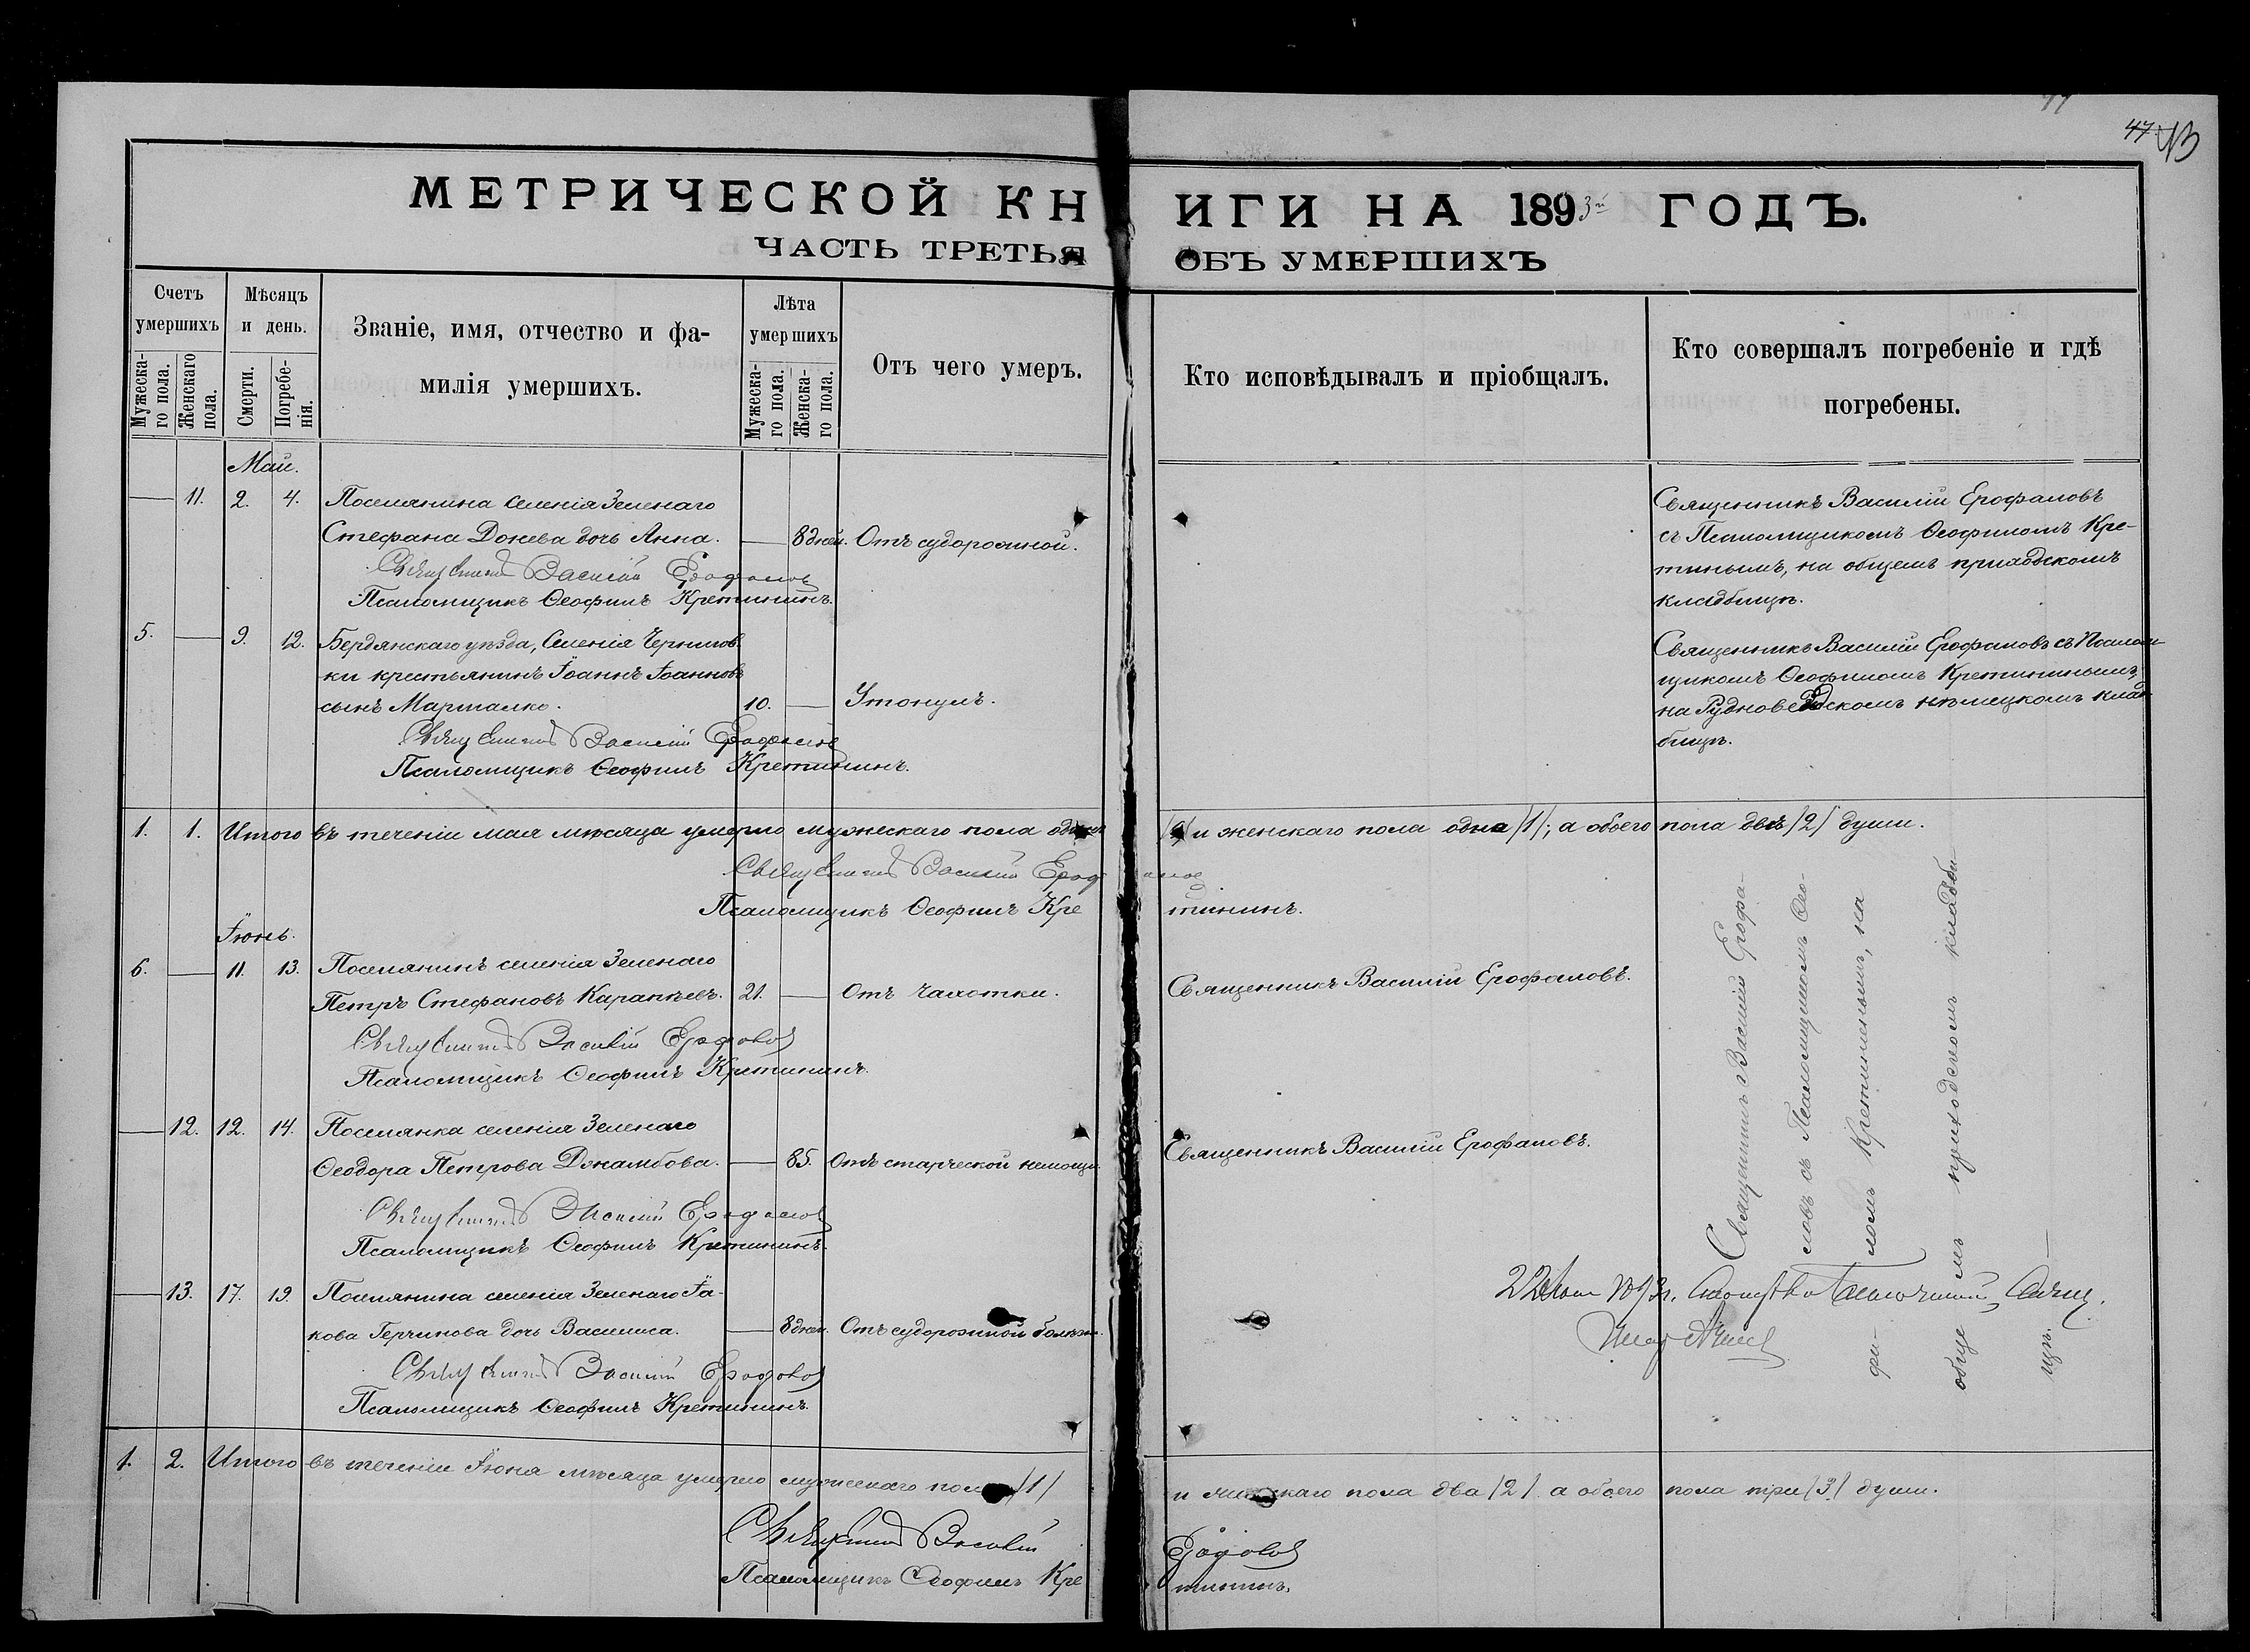 47 43
МЕТРИЧЕСКОЙ КНИГИ НА 1893й ГОДЪ.
ЧАСТЬ ТРЕТЬЯ ОБЪ УМЕРШИХЪ
Счетъ умершихъ
Мужеска-го пола.
Женскаго пола.
Мѣсяцъ и день.
Смерти.
Погребе-нія.
Званіе, имя, отчество и фа-
милія умершихъ.
Лѣта умершихъ
Мужеска-го пола.
Женска-го пола.
Отъ чего умеръ.
Кто исповѣдывалъ и пріобщалъ.
Кто совершалъ погребеніе и гдѣ
погребены.
Май.
— 11. 2. 4. Поселянина селенія Зеленаго
Стефана Донева дочь Анна. — 8 дней. Отъ судорожной.
Священникъ Василій Ерофаловъ
Псаломщикъ Ѳеофилъ Кретининъ.
Священникъ Василій Ерофаловъ
съ Псаломщикомъ Ѳеофиломъ Кре-
тинымъ, на общемъ приходскомъ
кладбищѣ.
5. — 9. 12. Бердянскаго уѣзда, Селенія Чернигов-
ки крестьянинъ Іоаннъ Іоанновъ
сынъ Марталко. 10. — Утонулъ.
Священникъ Василій Ерофаловъ
Псаломщикъ Ѳеофилъ Кретининъ.
Священникъ Василій Ерофаловъ съ Псалом-
щикомъ Ѳеофиломъ Кретининымъ,
на нѣмецкомъ клад-
бищѣ.
1. 1. Итого въ теченіи мая мѣсяца умерло мужескаго пола одинъ /1/ и женскаго пола одна /1/; а обоего пола двѣ /2/ души.
Священникъ Василій Ерофаловъ
Псаломщикъ Ѳеофилъ Кретининъ.
Іюнь.
6. — 11. 13. Поселянинъ селенія Зеленаго
Петръ Стефановъ Карапѣевъ. 21. — Отъ чахотки.
Священникъ Василій Ерофаловъ.
Священникъ Василій Ерофаловъ
Псаломщикъ Ѳеофилъ Кретининъ.
— 12. 12. 14. Поселянка селенія Зеленаго
Ѳеодора Петрова Джамбова. — 85. Отъ старческой немощи.
Священникъ Василій Ерофаловъ.
Священникъ Василій Ерофаловъ
Псаломщикъ Ѳеофилъ Кретининъ.
— 13. 17. 19. Поселянина селенія Зеленаго Іа-
кова Герчинова дочь Василиса. — 8 дней. Отъ судорожной болѣзни.
Священникъ Василій Ерофаловъ
Псаломщикъ Ѳеофилъ Кретининъ.
Священникъ Василій Ерофа-
ловъ съ Псаломщикомъ Ѳео-
фи-ломъ Кретининымъ, на
общемъ приходскомъ кладби-
щѣ.
1. 2. Итого въ теченіи Іюня мѣсяца умерло мужескаго пола /1/ и женскаго пола два /2/ а обоего пола три /3/ души.
Священникъ Василій Ерофаловъ
Псаломщикъ Ѳеофилъ Кретининъ.